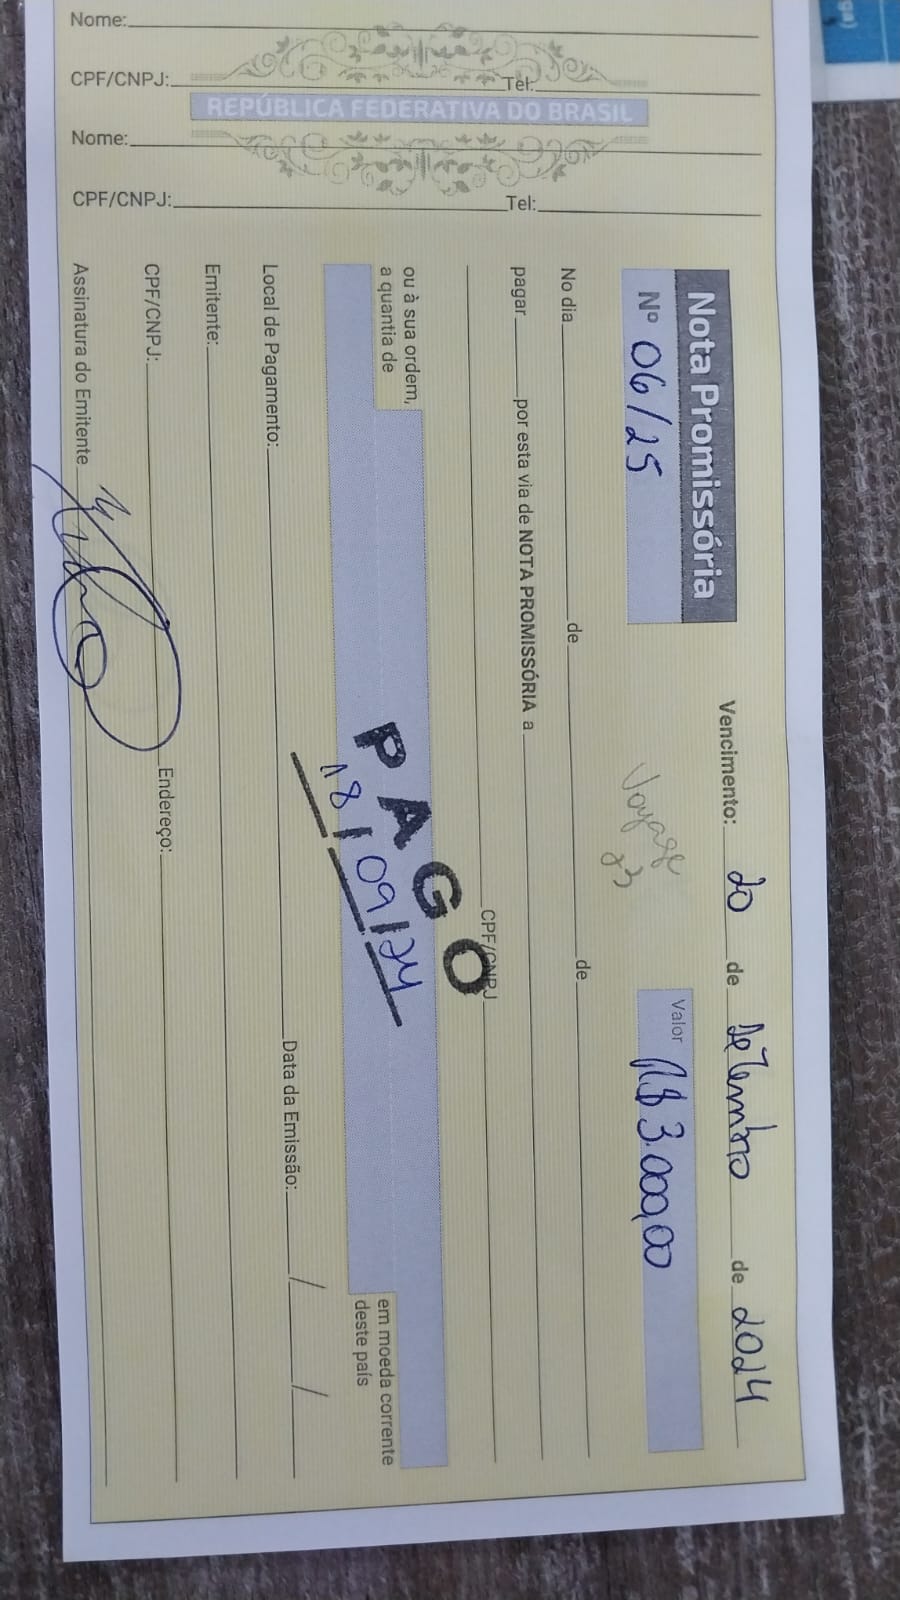 Nome:
CPF/CNPJ: Tel:
REPÚBLICA FEDERATIVA DO BRASIL
Nome:
CPF/CNPJ: Tel:
Nota Promissória Vencimento: 20 de Setembro de 2024
Nº 06/25 Valor R$ 3.000,00
Voyage
23
No dia de de
pagar por esta via de NOTA PROMISSÓRIA a
CPF/CNPJ
ou à sua ordem,
a quantia de
em moeda corrente
deste país
PAGO
18/09/24
Local de Pagamento: Data da Emissão: / /
Emitente:
CPF/CNPJ: Endereço:
Assinatura do Emitente
ga)